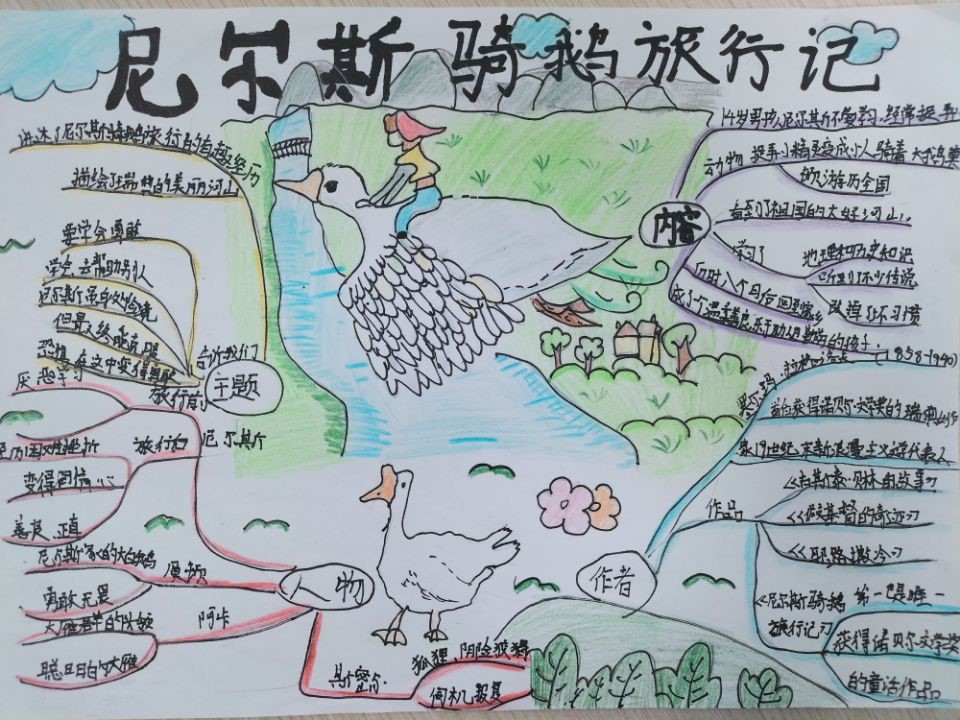 尼尔斯骑鹅旅行记
讲述了尼尔斯骑鹅旅行的奇趣经历
描绘了瑞典的美丽河山
要学会勇敢
学会去帮助别人
尼尔斯虽有缺点
但最终能克服
告诉我们
主题
旅行前
厌恶学习
尼尔斯
旅行中
经历困难挫折
变得自信心
善良、正直
尼尔斯家的大白鹅
勇敢无畏
阿卡
大雁群中的头领
聪明的大雁
人物
斯密尔
狐狸,阴险狡猾
伺机报复
内容
14岁男孩尼尔斯不爱学习,经常捉弄
动物
捉弄小精灵变成小人骑着大
游历全国
看到了祖国的大好河山。
学习了
地理和历史知识
听了不少传说
改掉了坏习惯
历时八个月后回到家
成了一个温柔善良、乐于助人且勤劳的孩子。
(1858-1940)
首位获得诺贝尔文学奖的瑞典
是19世纪末新浪漫主义文学代表人
作者
作品
《古斯泰·贝林的故事》
《假基督的奇迹》
《耶路撒冷》
《尼尔斯骑鹅
旅行记》
第一且唯一
获得诺贝尔文学奖
的童话作品